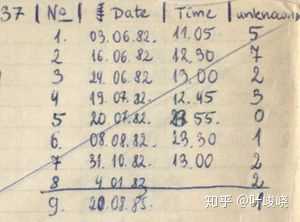 37 | № | Date | Time | unknown
1. 03.06.82. 11.05 5
2 16.06.82 12.30 7
3 24.06.82 13.00 2
4 19.07.82. 12.45 3
5 20.07.82. 23.55. 0
6. 08.08.82. 23.30 1
7 31.10.82. 13.00 2
8 4.01.83 2
9. 20.08.85.
知乎 @叶峻峣